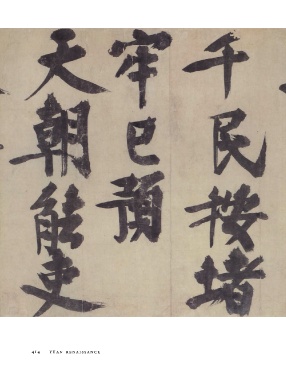 千民按堵
牢已預
天朝能吏
414 YÜAN RENAISSANCE